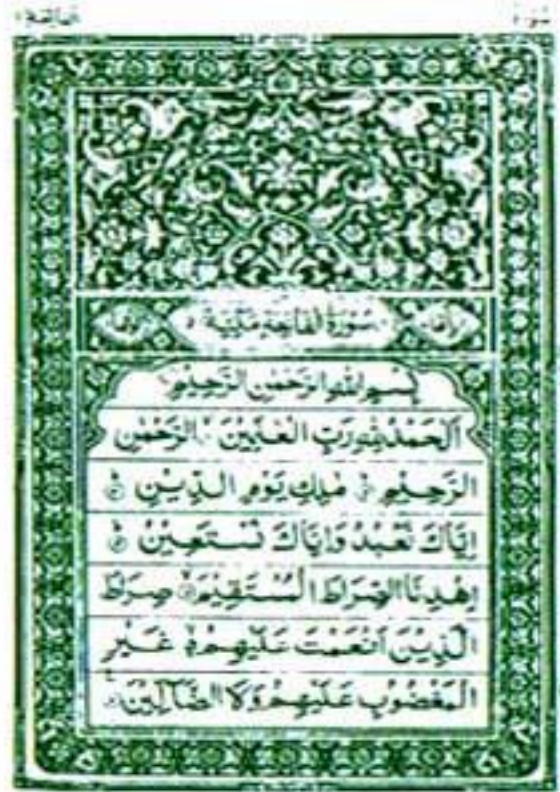 سُورَةُ الْفَاتِحَةِ مَكِّيَّةٌ
بِسْمِ اللهِ الرَّحْمٰنِ الرَّحِيْمِ
اَلْحَمْدُ لِلّٰهِ رَبِّ الْعٰلَمِيْنَ الرَّحْمٰنِ
الرَّحِيْمِ مٰلِكِ يَوْمِ الدِّيْنِ
اِيَّاكَ نَعْبُدُ وَاِيَّاكَ نَسْتَعِيْنُ
اِهْدِنَا الصِّرَاطَ الْمُسْتَقِيْمَ صِرَاطَ
الَّذِيْنَ اَنْعَمْتَ عَلَيْهِمْ غَيْرِ
الْمَغْضُوْبِ عَلَيْهِمْ وَلَا الضَّآلِّيْنَ